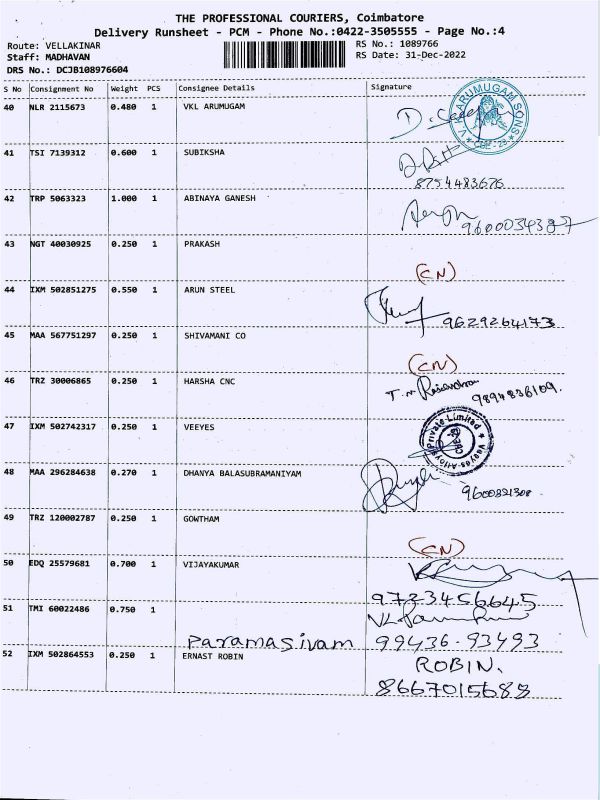 THE PROFESSIONAL COURIERS, Coimbatore
Delivery Runsheet - PCM - Phone No.:0422-3505555 - Page No.:4
Route: VELLAKINAR
RS No.: 1089766
Staff: MADHAVAN
RS Date: 31-Dec-2022
DRS No.: DCJB108976604
S No Consignment No Weight PCS Consignee Details Signature
40 NLR 2115673 0.480 1 VKL ARUMUGAM
V.K.L ARUMUGAM SONS
41 TSI 7139312 0.600 1 SUBIKSHA
8754483676
42 TRP 5063323 1.000 1 ABINAYA GANESH
9600034387
43 NGT 40030925 0.250 1 PRAKASH
(CN)
44 IXM 502851275 0.550 1 ARUN STEEL
9629264173
45 MAA 567751297 0.250 1 SHIVAMANI CO
(CN)
46 TRZ 30006865 0.250 1 HARSHA CNC
9894836109.
47 IXM 502742317 0.250 1 VEEYES
Veeyes Alloys Private Limited
48 MAA 296284638 0.270 1 DHANYA BALASUBRAMANIYAM
9600821308
49 TRZ 120002787 0.250 1 GOWTHAM
(CN)
50 EDQ 25579681 0.700 1 VIJAYAKUMAR
9723456645
51 TMI 60022486 0.750 1
Paramasivam 99436-93493
52 IXM 502864553 0.250 1 ERNAST ROBIN
ROBIN.
8667015688